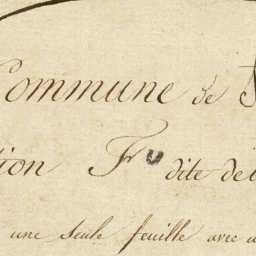 Commune de
tion F u dite de
une seule feuille avec